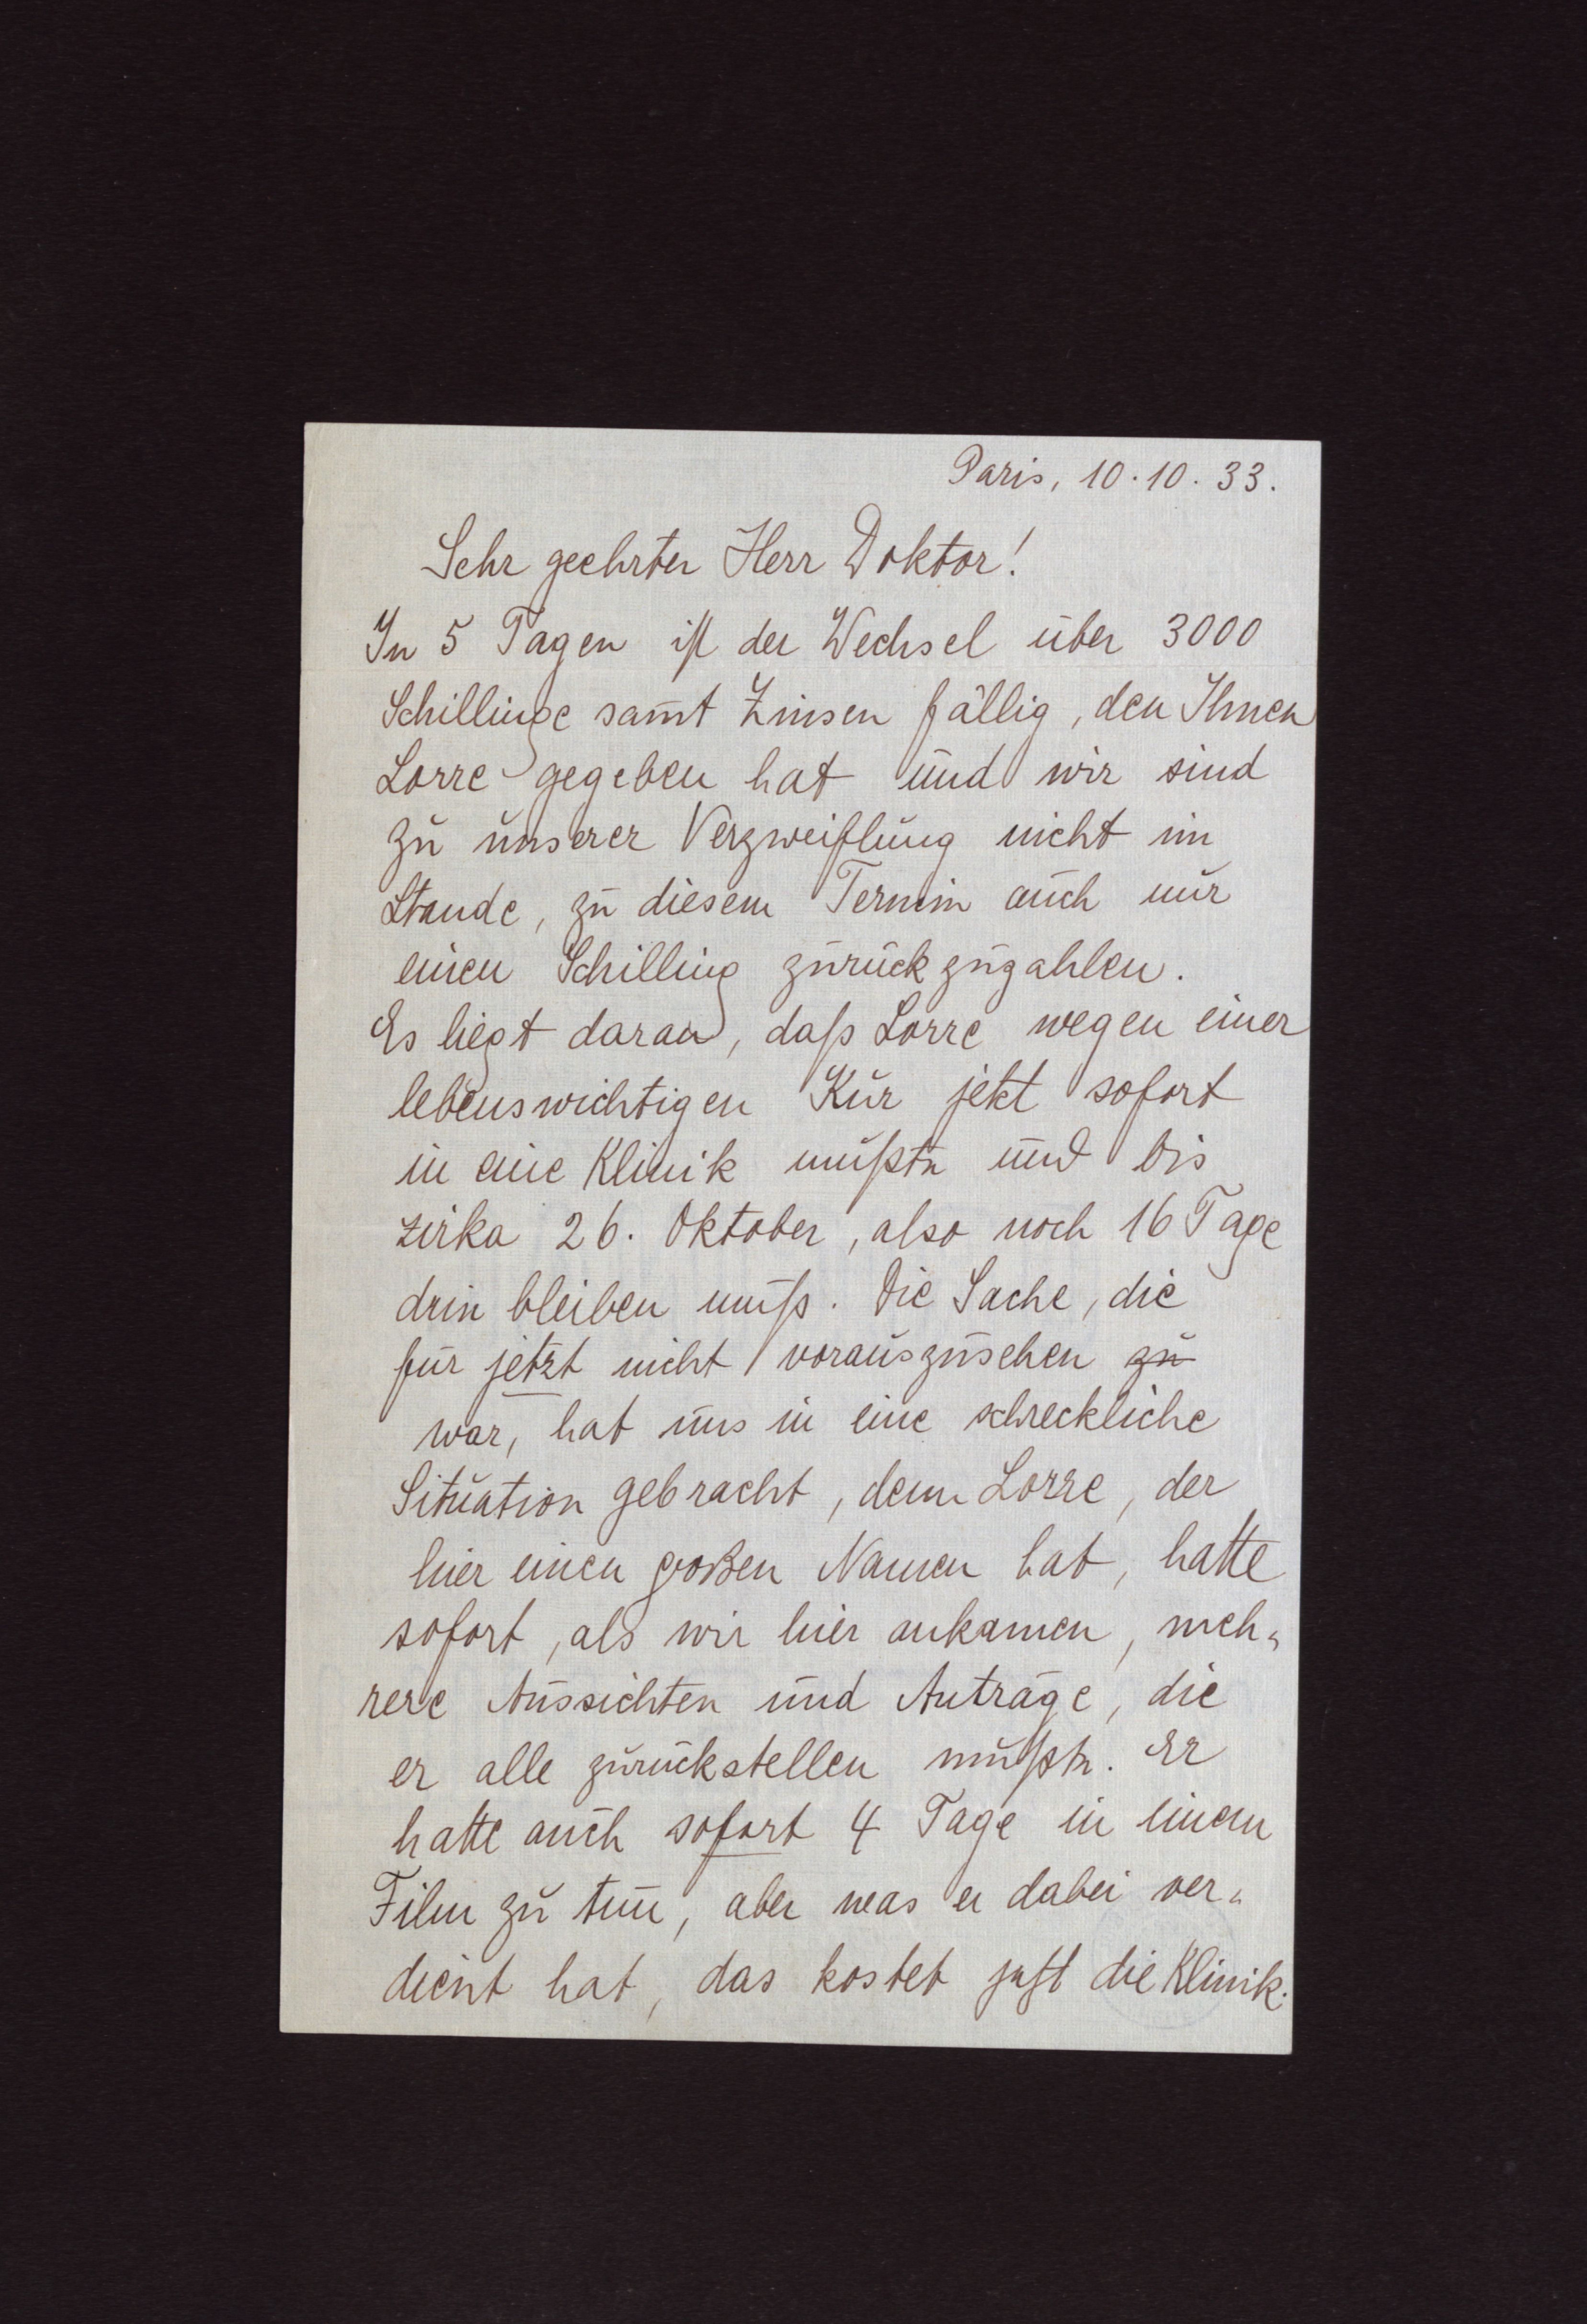 Paris, 10.10.33.
Sehr geehrter Herr Doktor!
In 5 Tagen ist der Wechsel über 3000
Schillinge samt Zinsen fällig, den Ihnen
Lorre gegeben hat und wir sind
zu unserer Verzweiflung nicht im
Stande, zu diesem Termin auch nur
einen Schilling zurückzuzahlen.
Es liegt daran, daß Lorre wegen einer
lebenswichtigen Kur jetzt sofort
in eine Klinik mußte und bis
zirka 26. Oktober, also noch 16 Tage
drin bleiben muß. Die Sache, die
für jetzt nicht vorauszusehen zu
war, hat uns in eine schreckliche
Situation gebracht, denn Lorre, der
hier einen großen Namen hat, hatte
sofort, als wir hier ankamen, meh-
rere Aussichten und Anträge, die
er alle zurückstellen mußte. Er
hatte auch sofort 4 Tage in einem
Film zu tun, aber was er dabei ver-
dient hat, das kostet just die Klinik.